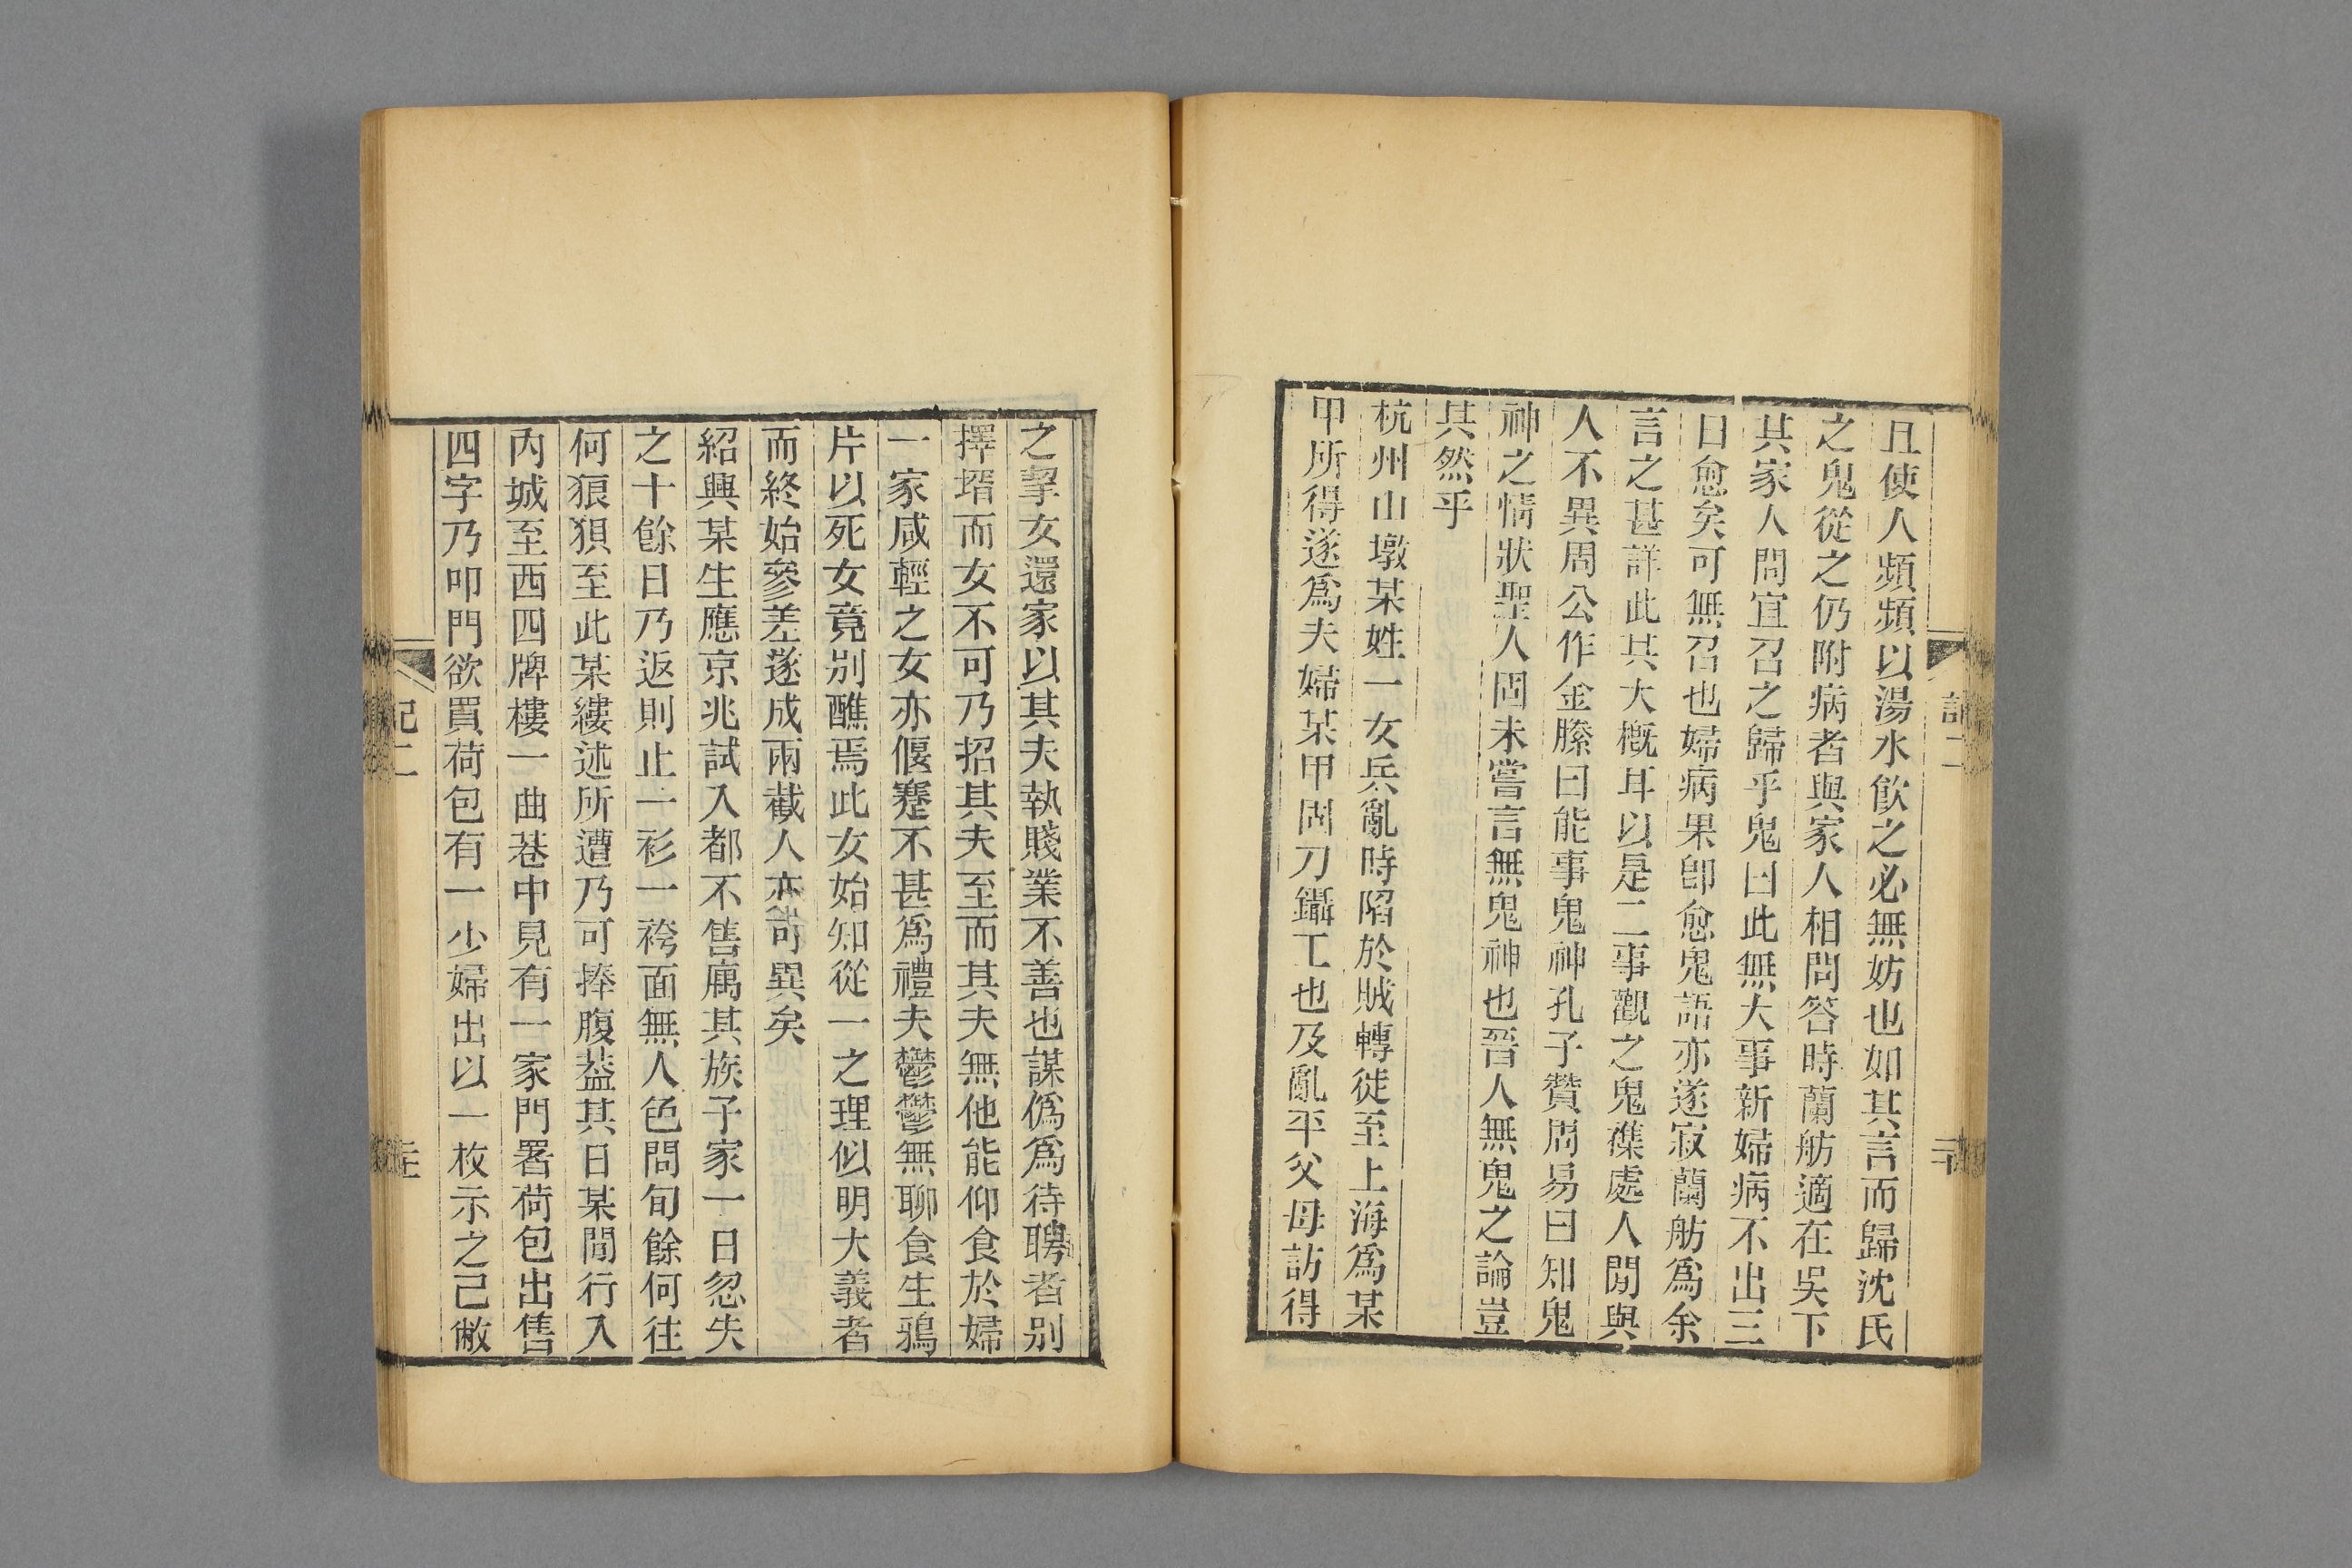 且使人頻頻以湯水飲之必無妨也如其言而歸沈氏
之鬼從之仍附病者與家人相問答時蘭舫適在吳下
其家人問宜召之歸乎鬼曰此無大事新婦病不出三
日愈矣可無召也婦病果卽愈鬼語亦遂寂蘭舫爲余
言之甚詳此其大概耳以是二事觀之鬼襍處人閒與
人不異周公作金縢曰能事鬼神孔子贊周易曰知鬼
神之情狀聖人固未嘗言無鬼神也晉人無鬼之論豈
其然乎
杭州山墩某姓一女兵亂時陷於賊轉徒至上海爲某
甲所得遂爲夫婦某甲固刀鑷工也及亂平父母訪得
之挈女還家以其夫執賤業不善也謀僞爲待聘者別
擇壻而女不可乃招其夫至而其夫無他能仰食於婦
一家咸輕之女亦偃蹇不甚爲禮夫鬱鬱無聊食生鴉
片以死女竟別醮焉此女始知從一之理似明大義者
而終始參差遂成兩截人亦可異矣
紹興某生應京兆試入都不售寓其族子家一日忽失
之十餘日乃返則止一衫一袴面無人色問旬餘何往
何狼狽至此某縷述所遭乃可捧腹葢其日某閒行入
內城至西四牌樓一曲巷中見有一家門署荷包出售
四字乃叩門欲買荷包有一少婦出以一枚示之己敝
記二
二十
記二